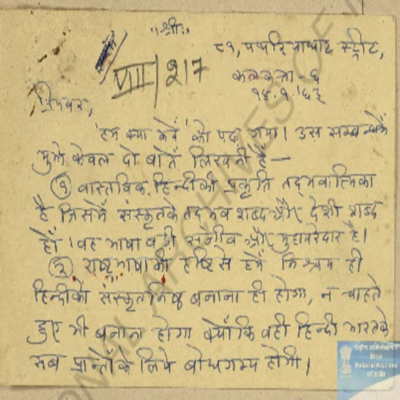 "श्रीः"
८१, पथरियाघाट स्ट्रीट,
VII/217
कलकत्ता - ६
प्रियवर,
'हम क्या करें' को पढ़ गया। उस सम्बन्धमें
मुझे केवल दो बातें लिखनी हैं—
① वास्तविक हिन्दीकी प्रकृति तद्भवात्मिका
है जिसमें संस्कृतके तद्भव शब्द और देशी शब्द
हों। वह भाषा बड़ी सजीव और मुहावरेदार है।
② राष्ट्रभाषाकी दृष्टिसे हमें निश्चय ही
हिन्दीको संस्कृतनिष्ठ बनाना ही होगा, न चाहते
हुए भी बनाना होगा क्योंकि वही हिन्दी भारतके
सब प्रान्तोंके लिये बोधगम्य होगी।